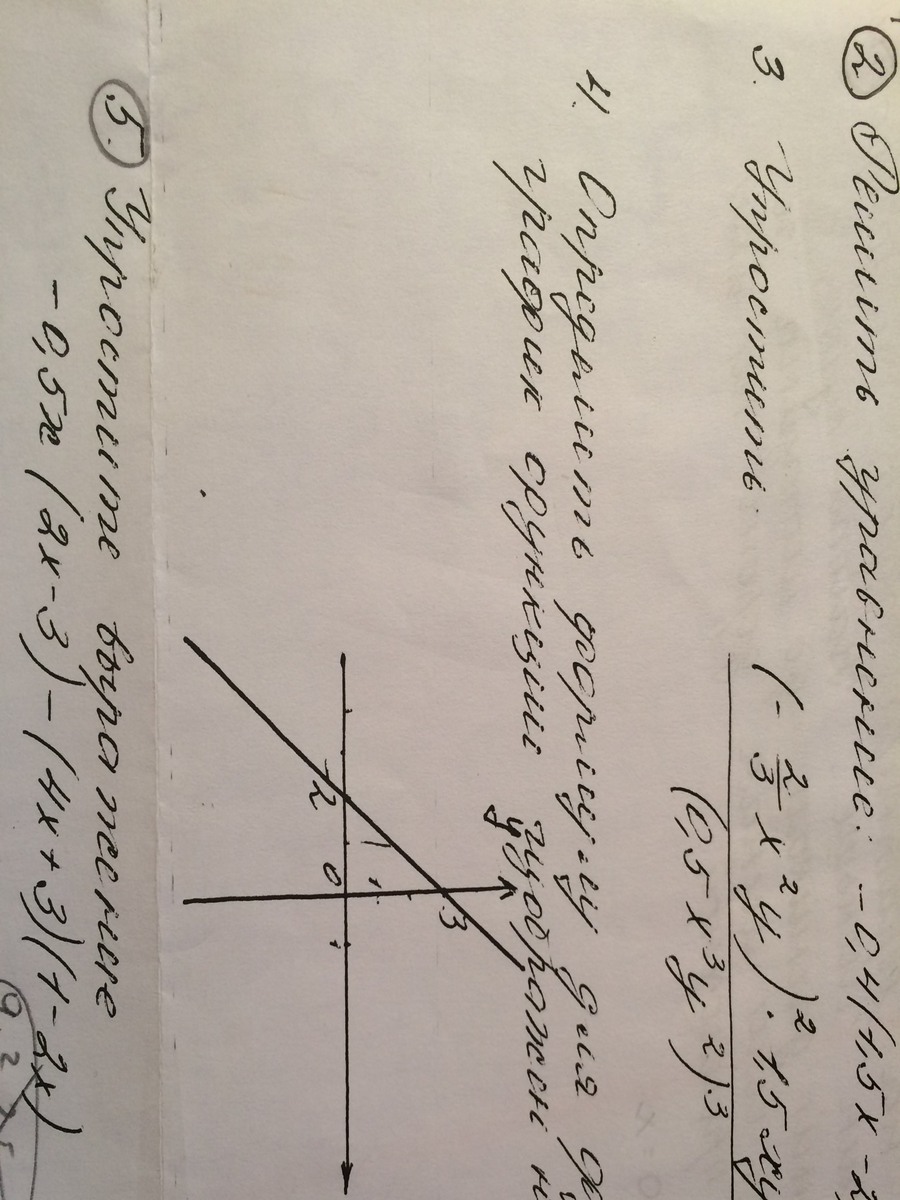 2 Решить уравнение: -0,4(1,5x-2
3. Упростить: (-2/3 x²y)² · 1,5 xy
(0,5 x³y²)³
4. Определить формулу для ф
график функции изображён н
y
3
1
-2 0
5. Упростите выражение
-0,5x (2x-3) - (4x+3)(1-2x)